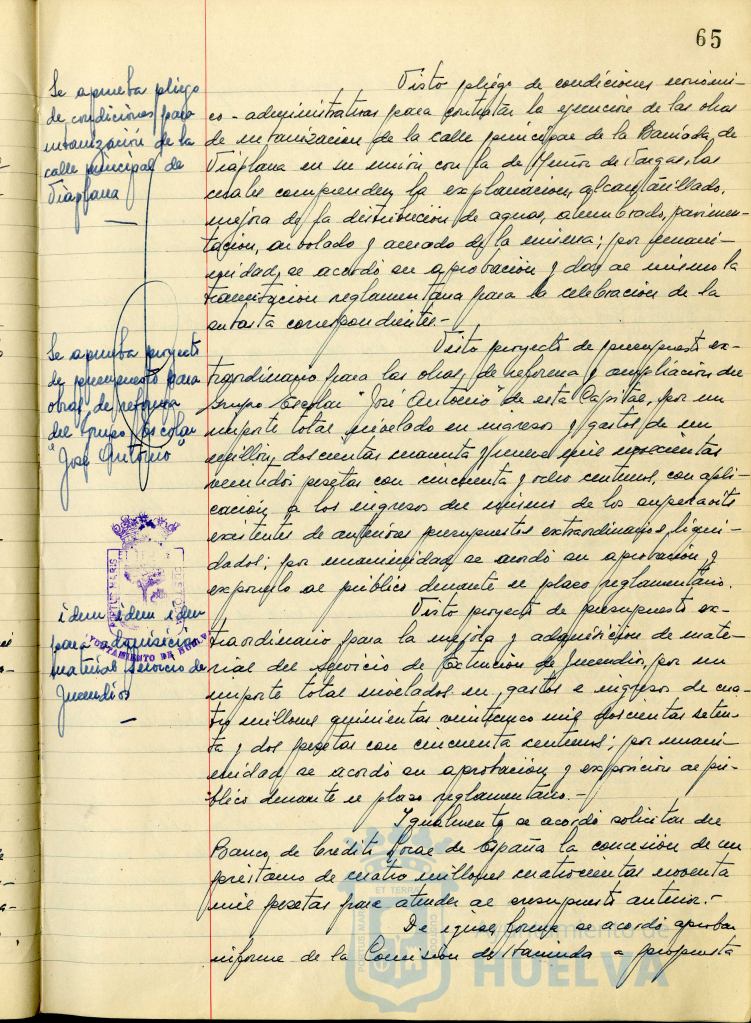 65
Se aprueba pliego
de condiciones para
urbanización de la
calle principal de
Viaplana
Visto pliego de condiciones económi-
co-administrativas para contratar la ejecución de las obras
de urbanización de la calle principal de la Barriada de
Viaplana en su unión con la de Muñoz de Vargas, las
cuales comprenden la explanación, alcantarillado,
mejora de la distribución de aguas, alumbrado, pavimen-
tación, arbolado y acerado de la misma; por unani-
midad, se acordó su aprobación y dar al mismo la
tramitación reglamentaria para la celebración de la
subasta correspondiente.-
Se aprueba proyecto
de presupuesto para
obras de reforma
del Grupo Escolar
"José Antonio"
Visto proyecto de presupuesto ex-
traordinario para las obras de reforma y ampliación del
Grupo Escolar "José Antonio" de esta Capital, por un
importe total nivelado en ingresos y gastos de un
millón doscientas noventa y nueve mil novecientas
veintidos pesetas con cincuenta y ocho centimos, con apli-
cación a los ingresos del mismo de los superavits
existentes de anteriores presupuestos extraordinarios liqui-
dados; por unanimidad, se acordó su aprobación y
exponerlo al público durante el plazo reglamentario.
PORTUS MARIS
AYUNTAMIENTO DE HUELVA
idem idem idem
para
material Servicio de
Incendios
Visto proyecto de presupuesto ex-
traordinario para la mejora y adquisición de mate-
rial del Servicio de Extinción de Incendios, por un
importe total nivelados en gastos e ingresos de cua-
tro millones quinientas veinticinco mil doscientas seten-
ta y dos pesetas con cincuenta centimos; por unani-
midad se acordó su aprobación y exposición al pú-
blico durante el plazo reglamentario.-
Igualmente se acordó solicitar del
Banco de Crédito Local de España la concesión de un
préstamo de cuatro millones cuatrocientas noventa
mil pesetas para atender al presupuesto anterior.-
De igual forma se acordó aprobar
informe de la Comisión de Hacienda a propuesta
Ayuntamiento de
HUELVA